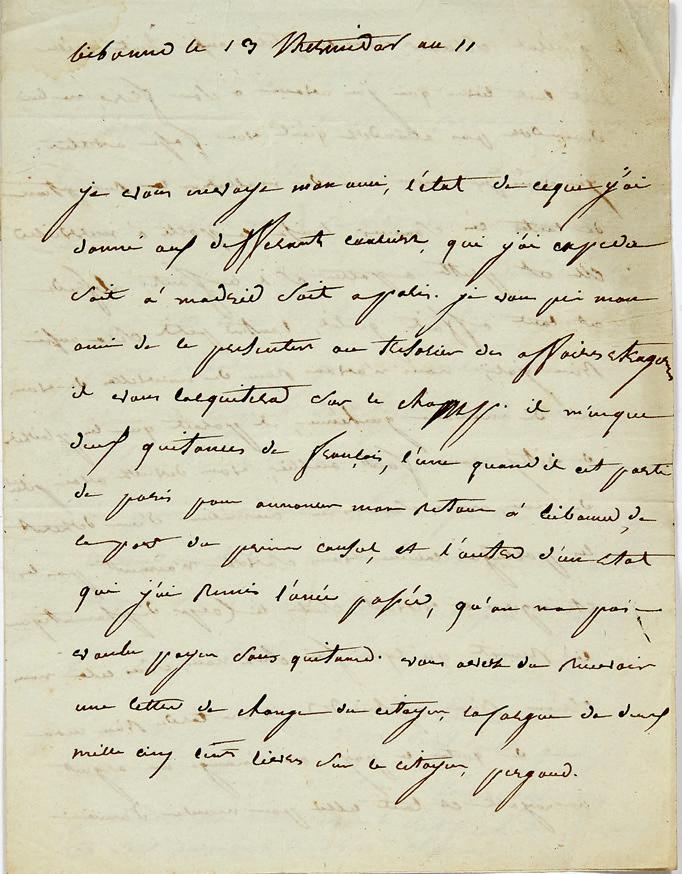 lisbonne le 13 thermidor an 11
je vous envoye mon ami, l'état de ceque j'ai
donné aux differants couriers, que j'ai expedié
soit à madrid soit a paris. je vous prie mon
ami de le presenter au tresorier des affaires etrangeres
il vous l'aquitera sur le champ. il manque
deux quitances de françois, l'une quand il est parti
de paris pour annoncer mon retour à lisbonne, de
la part du premier consul, et l'autre d'un etat
que j'ai remis l'anée passée, qu'on n'a pas
voulu payer sans quitance. vous avez du recevoir
une lettre de change du citoyen, de deux
mille cinq cents livres sur le citoyen,